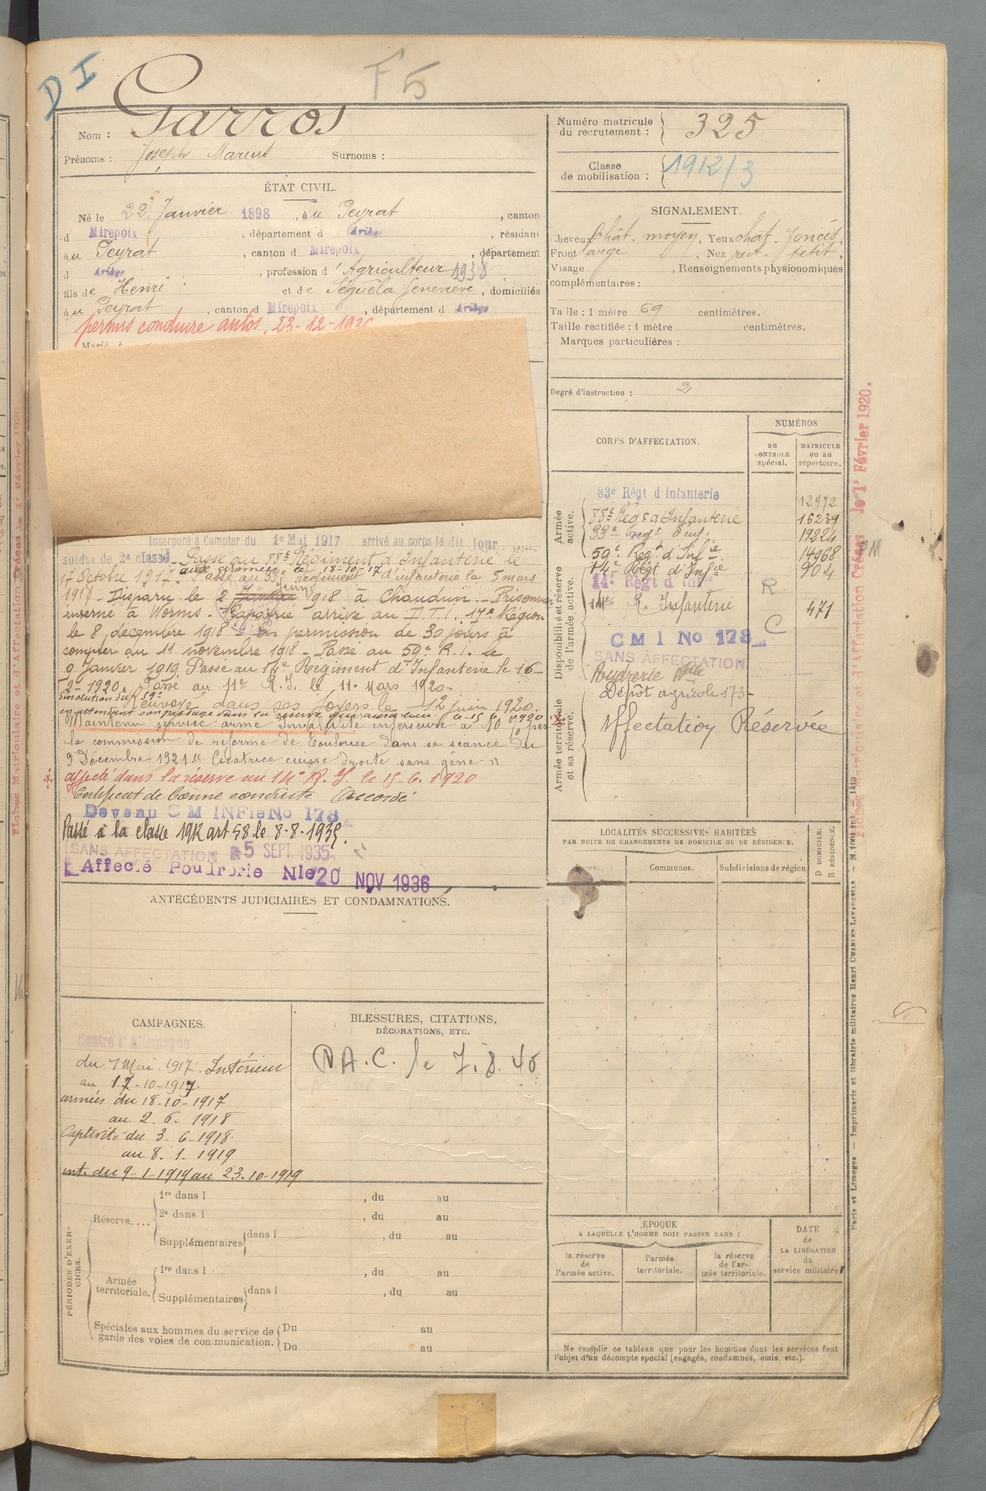 D I
F5
Nom : Garros
Prénoms : Joseph Marius Surnoms :
ÉTAT CIVIL.
Né le 22 Janvier 1898, à u Peyrat, canton
d Mirepoix, département d Ariège, résidant
à u Peyrat, canton d Mirepoix, département
d Ariège, profession d'Agriculteur 1938
fils de Henri et de Séguéla Geneviève, domiciliés
à u Peyrat, canton d Mirepoix, département d Ariège
permis conduire autos, 23-12-19
Incorporé à Compter du 1er Mai 1917 arrivé au corps le dit jour
soldat de 2e classe. Passé au 88e Régiment d'Infanterie le
17 Octobre 1917. aux armées le 18-10-17 Passé au 33e régiment d'infanterie la 5 mars
1918 - Disparu le 2 juin 1918 à Chaudun. - Prisonnier
interné à Worms. - Rapatrié arrivé au D.T.I. 17e Région
le 8 décembre 1918 - En permission de 30 jours à
compter du 11 novembre 1918 - Passé au 59e R.I. le
9 Janvier 1919 Passé au 14e Régiment d'Infanterie le 16-
2-1920. Passé au 11e R.I. le 11 Mars 1920.
Renvoyé dans ses foyers le 12 juin 1920.
en attendant son passage dans la réserve qui aura lieu le 15
Maintenu service armé Invalidité inférieure à 10 % par
la commission de réforme de Toulouse dans sa séance du
9 Décembre 1921 "Cicatrice cuisse droite sans gêne"
affecté dans la réserve au 14e R.I. le 15.6.1920
Certificat de bonne conduite Accordé
Devenu C M INFie No 178
Passé à la classe 1912 art 58 le 8-8-1935.
SANS AFFECTATION 5 SEPT. 1935
Affecté Poudrerie Nle 20 NOV 1936
ANTÉCÉDENTS JUDICIAIRES ET CONDAMNATIONS.
CAMPAGNES.
Contre l'Allemagne
du 1 Mai 1917 Intérieur
au 17-10-1917.
armées du 18-10-1917
au 2. 6. 1918
Captivité du 3. 6-1918.
au 8. 1. 1919
int. du 9-1-1919 au 23.10-1919
BLESSURES, CITATIONS,
DÉCORATIONS, ETC.
D.A.C. le 7.8.45
PÉRIODES D'EXERCICES.
Réserve....
1re dans l , du au
2e dans l , du au
Supplémentaires dans l , du au
Armée territoriale.
1re dans l , du au
Supplémentaires dans l , du au
Spéciales aux hommes du service de garde des voies de communication.
Du au
Du au
Numéro matricule du recrutement : 325
Classe de mobilisation : 1912/3
SIGNALEMENT.
Cheveux chât. moyen, Yeux chat. foncés
Front large, Nez rect. petit.
Visage , Renseignements physionomiques
complémentaires :
Taille : 1 mètre 69 centimètres.
Taille rectifiée : 1 mètre centimètres.
Marques particulières :
Degré d'instruction : 2
CORPS D'AFFECTATION.
NUMÉROS
au CONTROLE spécial.
MATRICULE ou au répertoire.
Armée active.
83e Régt d'Infanterie 12972
88e Rég t d'Infanterie 16239
33e Régt d'Inf.
59e Régt d'Infie 14068
14e Régt d'Infie 904
Disponibilité et réserve de l'armée active.
14e Régt d'Infie R
14e R. Infanterie 471
C
C M I No 178
SANS AFFECTATION
Poudrerie Nle
Dépôt agricole 173
Armée territoriale et sa réserve.
Affectation Réservée
LOCALITÉS SUCCESSIVES HABITÉES
PAR SUITE DE CHANGEMENTS DE DOMICILE OU DE RÉSIDENCE.
Dates.
Communes.
Subdivisions de région
D DOMICILE.
R RÉSIDENCE.
ÉPOQUE
A LAQUELLE L'HOMME DOIT PASSER DANS :
la réserve de l'armée active.
l'armée territoriale.
la réserve de l'armée territoriale.
DATE
de
LA LIBÉRATION
du
service militaire
Ne remplir ce tableau que pour les hommes dont les services font
l'objet d'un décompte spécial (engagés, condamnés, omis, etc.).
Fiches Matriculaire et d'Affectation Créées le 1er Février 1920.
Paris et Limoges. — Imprimerie et librairie militaires Henri CHARLES-LAVAUZELLE.